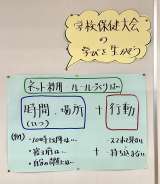 学校保健大会
の
学びを生かそう
ネット利用 ルールづくりは…
時間、場所 + 行動
(いつ)
(例)
・10時以降は…
・寝る前は…
・自分の部屋では…
+
・スマホは見ない
・持ち込まない